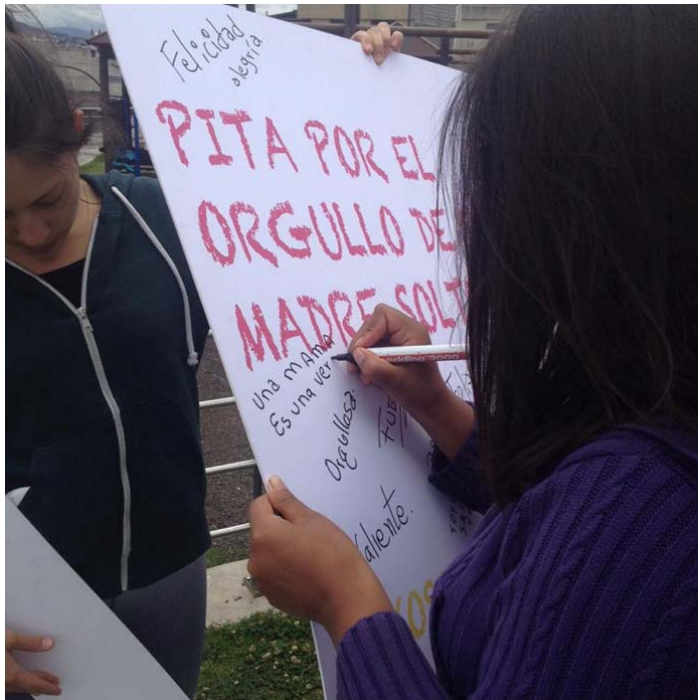 Felicidad
alegría
PITA POR EL
ORGULLO DE
MADRE
una mAmA
Es una ver
Orgullosa.
Valiente.